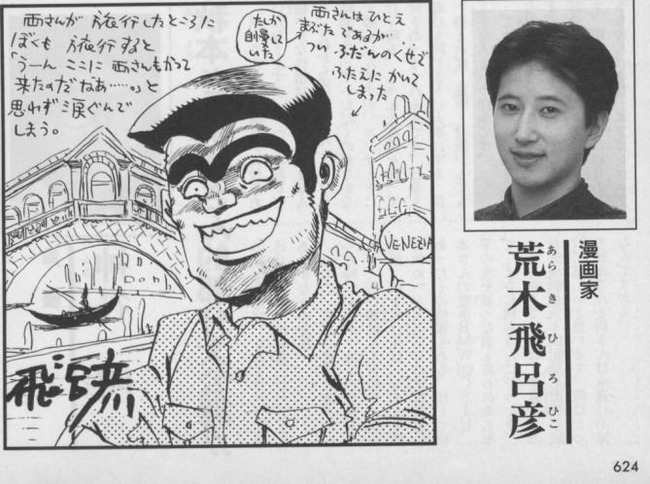 両さんが 旅行したところに
ぼくも 旅行すると
「うーん ここに 両さんもかつて
来たのだなあ……」と
思わず 涙ぐんで
しまう。
両さんはひとえ
まぶたであるが
つい ふだんのくせで
ふたえに かいて
しまった
たしか
自慢して
いた
VENEZIA
飛呂彦
漫画家
荒木飛呂彦
あら き ひ ろ ひこ
624